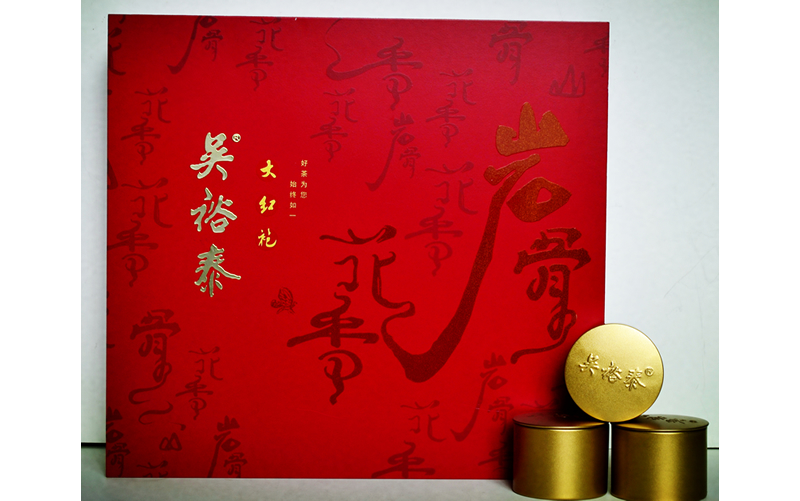 吴裕泰®
大红袍
好茶为您
始终如一
岩骨
花香
吴裕泰®